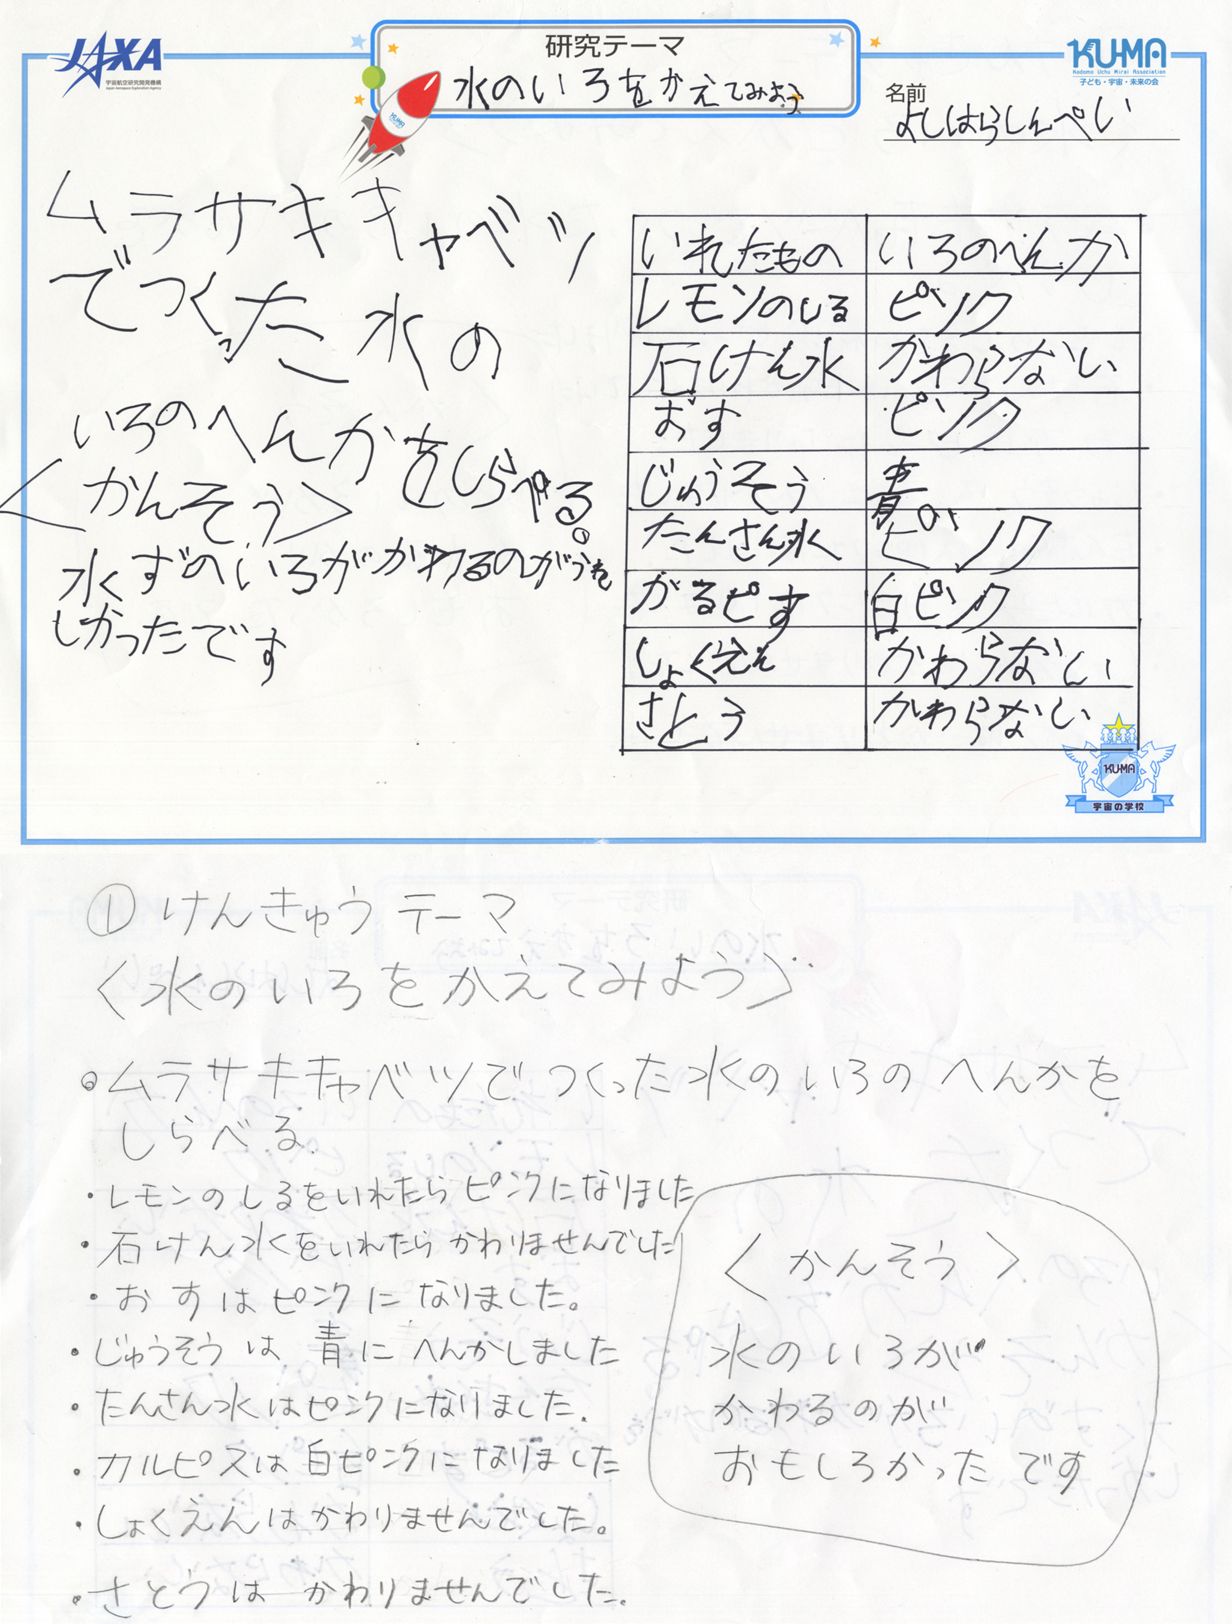 JAXA
宇宙航空研究開発機構
Japan Aerospace Exploration Agency
研究テーマ
水のいろをかえてみよう
KUMA
KUMA
Kodomo Uchu Mirai Association
子ども・宇宙・未来の会
名前
よしはらしんぺい
ムラサキキャベツ
でつくった水の
いろのへんかをしらべる。
<かんそう>
水ずのいろがかわるのがうれ
しかったです
いれたもの いろのへんか
レモンのしる ピンク
石けん水 かわらない
おす ピンク
じゅうそう 青
たんさん水 ピンク
がるピす 白ピンク
しょくえん かわらない
さとう かわらない
KUMA
宇宙の学校
①けんきゅうテーマ
<水のいろをかえてみよう>
ムラサキキャベツでつくった水のいろのへんかを
しらべる
・レモンのしるをいれたらピンクになりました
・石けん水をいれたらかわりませんでした
・おすはピンクになりました。
・じゅうそうは青にへんかしました
・たんさん水はピンクになりました.
・カルピスは白ピンクになりました
・しょくえんはかわりませんでした。
・さとうはかわりませんでした.
<かんそう>
水のいろが
かわるのが
おもしろかったです